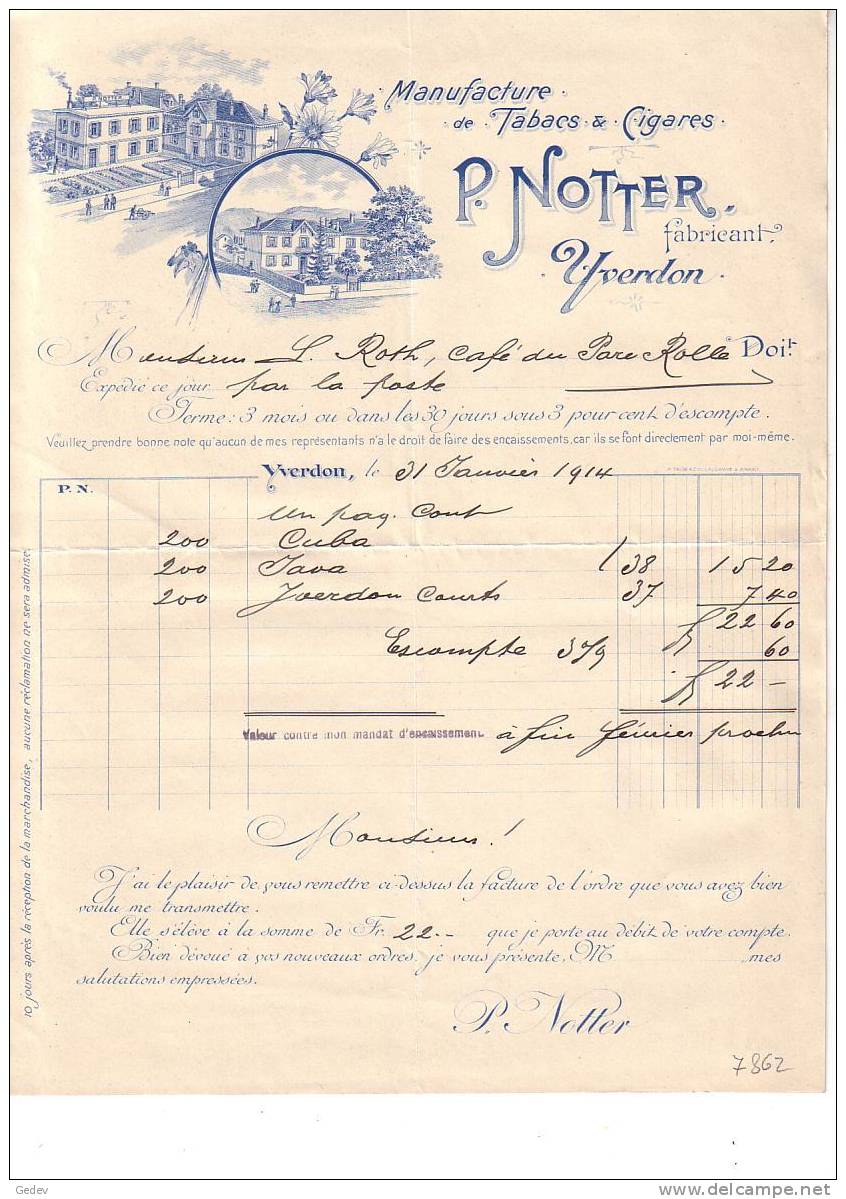 Manufacture
de Tabacs & Cigares
P. NOTTER,
fabricant,
Yverdon
P. NOTTER
Monsieur L. Roth, café du Parc Rolle Doit
Expédié ce jour par la poste
Terme: 3 mois ou dans les 30 jours sous 3 pour cent d'escompte.
Veuillez prendre bonne note qu'aucun de mes représentants n'a le droit de faire des encaissements, car ils se font directement par moi-même.
Yverdon, le 31 Janvier 1914
P. N.
un paq. Cont
200 Cuba
200 Java 38 15 20
200 Yverdon Courts 37 7 40
22 60
Escompte 3% 60
22 —
Valeur contre mon mandat d'encaissement à fin février prochn
10 jours après la réception de la marchandise, aucune réclamation ne sera admise.
Monsieur!
J'ai le plaisir de vous remettre ci-dessus la facture de l'ordre que vous avez bien
voulu me transmettre.
Elle s'élève à la somme de Fr. 22.- que je porte au débit de votre compte.
Bien dévoué à vos nouveaux ordres, je vous présente, M mes
salutations empressées.
P. Notter
7862
Gedev
www.delcampe.net